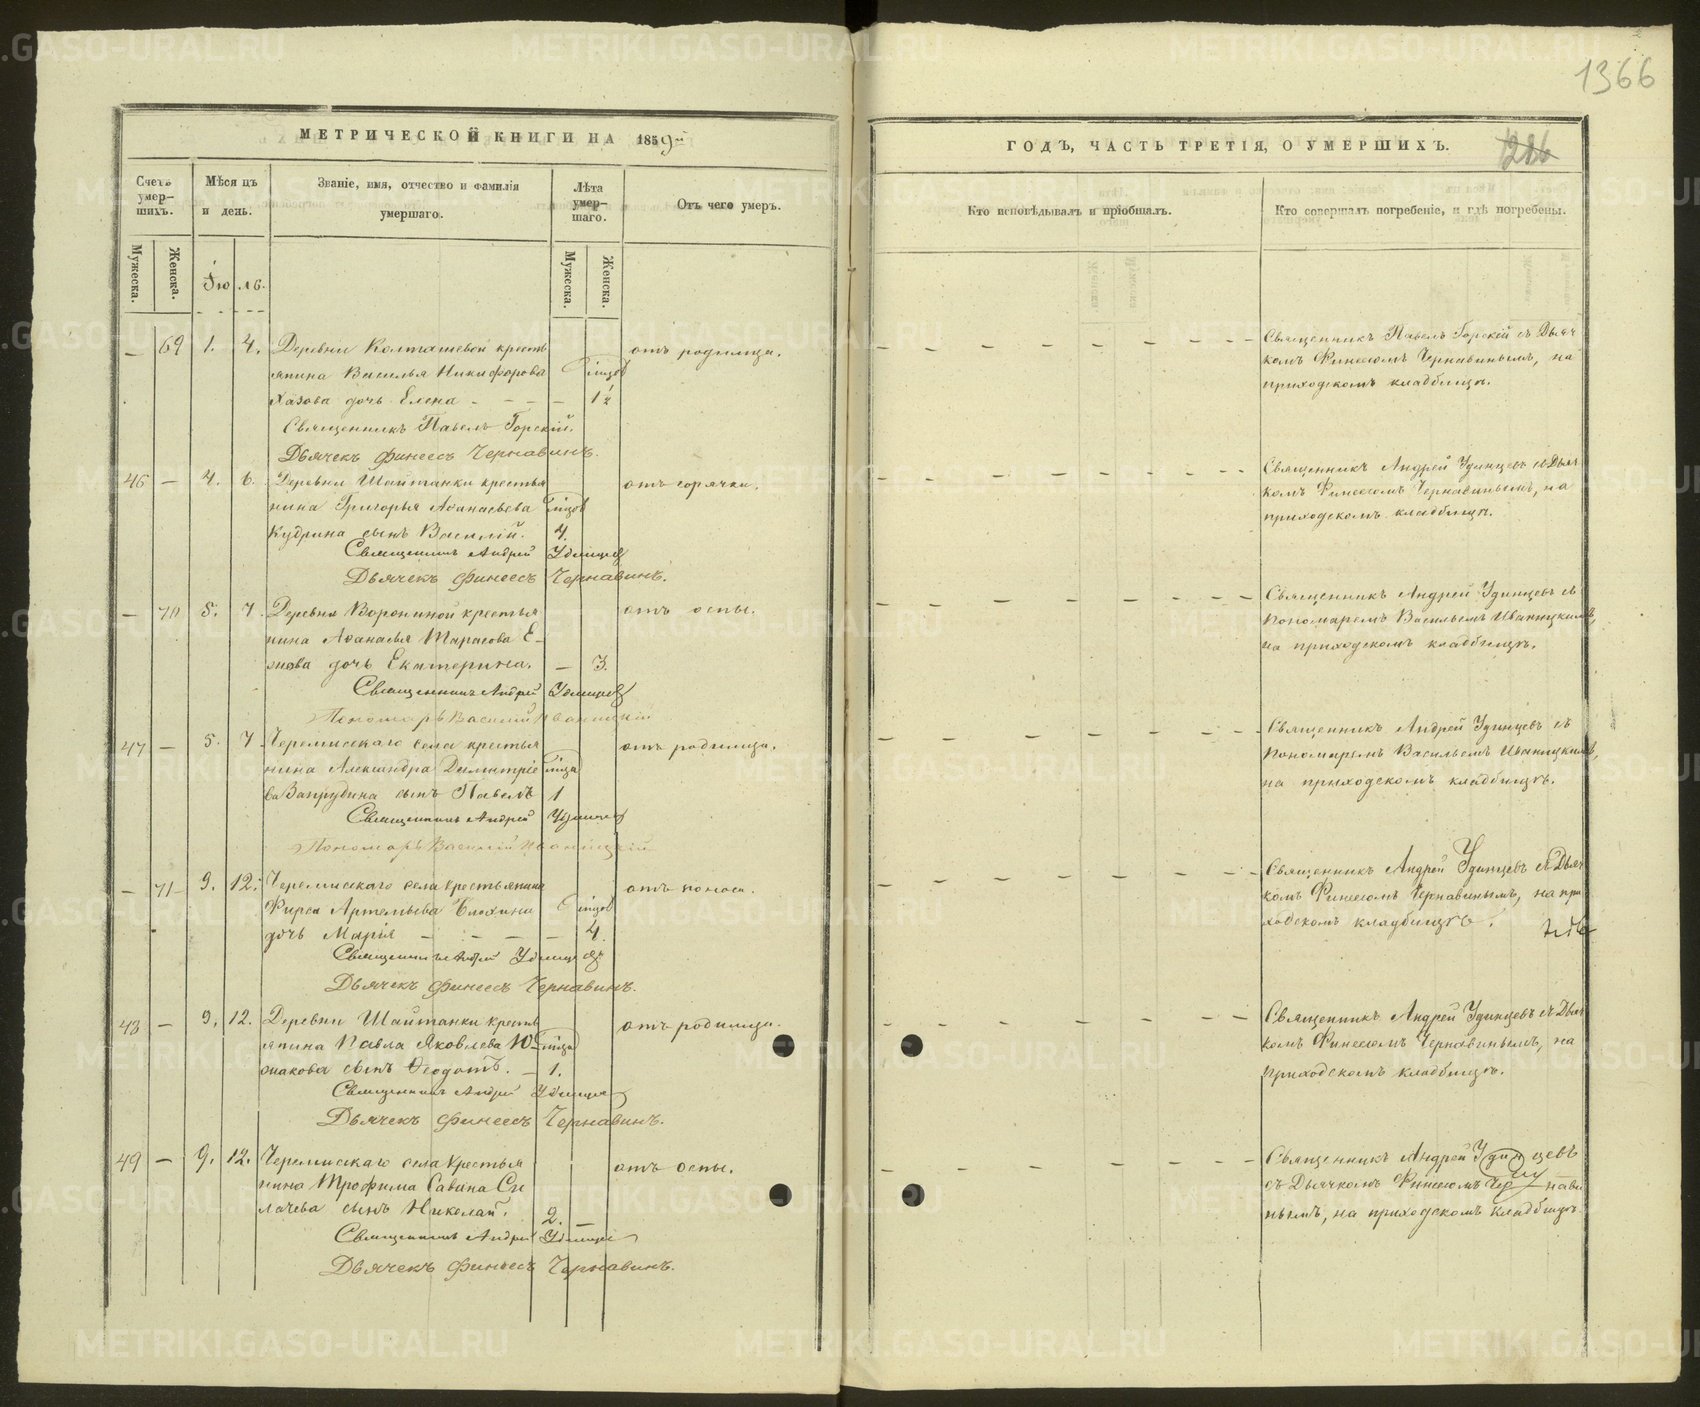 1366
МЕТРИЧЕСКОЙ КНИГИ НА 1859й
ГОДЪ, ЧАСТЬ ТРЕТІЯ, О УМЕРШИХЪ.
Счетъ умерших.
Мѣсяцъ и день.
Званіе, имя, отчество и фамилія умершаго.
Лѣта умершаго.
Отъ чего умеръ.
Кто исповѣдывалъ и пріобщалъ.
Кто совершалъ погребеніе, и гдѣ погребены.
Мужеска. Женска.
Іюль.
Мужеска. Женска.
— 69 1. 4. Деревни Колташевой кресть
янина Василья Никифорова
Хазова дочь Елена — — — — 1½
отъ родимца.
Священникъ Павелъ Горскій съ Дьяч
комъ Финеесомъ Чернавинымъ, на
приходскомъ кладбищѣ.
Священникъ Павелъ Горскій.
Дьячекъ Финеесъ Чернавинъ.
46 — 4. 6. Деревни Шайтанки крестья
нина Григорья Аѳанасьева
Кудрина сынъ Василій.
отъ горячки.
Священникъ Андрей Удинцевъ съ Дьяч
комъ Финеесомъ Чернавинымъ, на
приходскомъ кладбищѣ.
Священникъ Андрей Удинцевъ
Дьячекъ Финеесъ Чернавинъ.
— 70 5. 7. Деревни Ворониной крестья
нина Аѳанасья Тарасова Е-
дочь Екатерина. — 3.
отъ оспы.
Священникъ Андрей Удинцевъ съ
Пономаремъ Васильемъ Иваницкимъ,
на приходскомъ кладбищѣ.
Священникъ Андрей Удинцевъ
Пономарь Василій Иваницкій
47 — 5. 7. Черемисскаго села крестья
нина Александра Димитріе
ва Запрудина сынъ Павелъ 1
отъ родимца.
Священникъ Андрей Удинцевъ съ
Пономаремъ Васильемъ Иваницкимъ,
на приходскомъ кладбищѣ.
Священникъ Андрей Удинцевъ
Пономарь Василій Иваницкій
— 71 9. 12. Черемисскаго села крестьянина
Фирса Артемьева Блохина
дочь Марія — — — — 4.
отъ поноса.
Священникъ Андрей Удинцевъ съ Дьяч
комъ Финеесомъ Чернавинымъ, на при
ходскомъ кладбищѣ.
Священникъ Андрей Удинцевъ
Дьячекъ Финеесъ Чернавинъ.
48 — 9. 12. Деревни Шайтанки кресть
янина Павла Яковлева Ю-
шакова сынъ Ѳеодотъ. — 1.
отъ родимца.
Священникъ Андрей Удинцевъ съ Дьяч
комъ Финеесомъ Чернавинымъ, на
приходскомъ кладбищѣ.
Священникъ Андрей Удинцевъ
Дьячекъ Финеесъ Чернавинъ.
49 — 9. 12. Черемисскаго села крестья
нина Трофима Савина Си
лачева сынъ Николай. 2. —
отъ оспы.
Священникъ Андрей Удинцевъ
съ Дьячкомъ Финеесомъ Чернави
нымъ, на приходскомъ кладбищѣ.
Священникъ Андрей Удинцевъ
Дьячекъ Финеесъ Чернавинъ.
METRIKI.GASO-URAL.RU